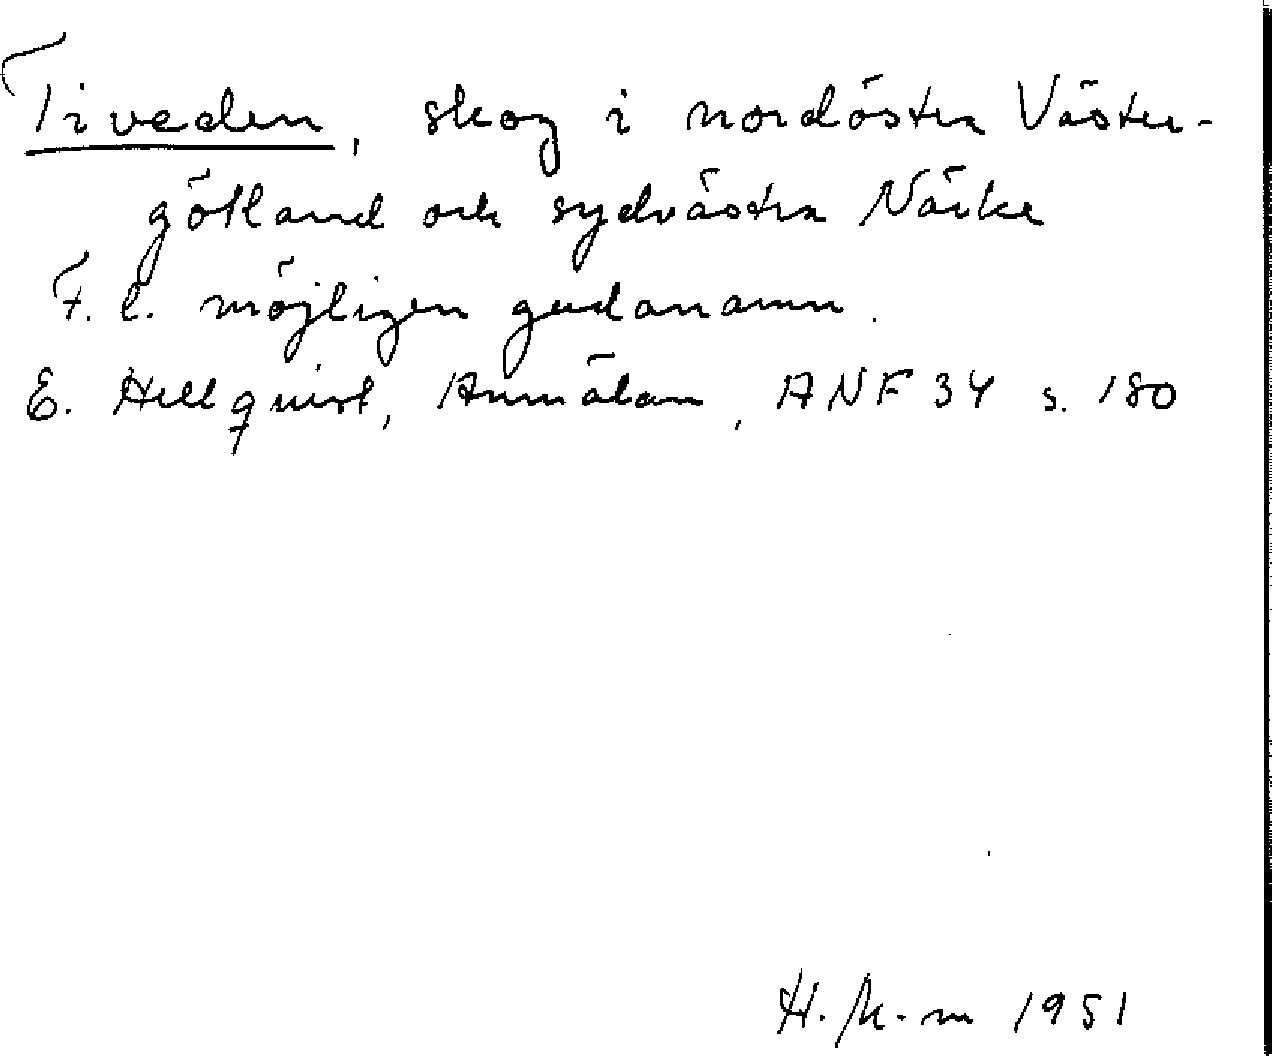 Tiveden, skog i nordöstra Väster-
götland och sydvästra Närke
F. l. möjligen gudanamn.
E. Hellquist, Anmälan, ANF 34 s. 180
H. K-m 1951